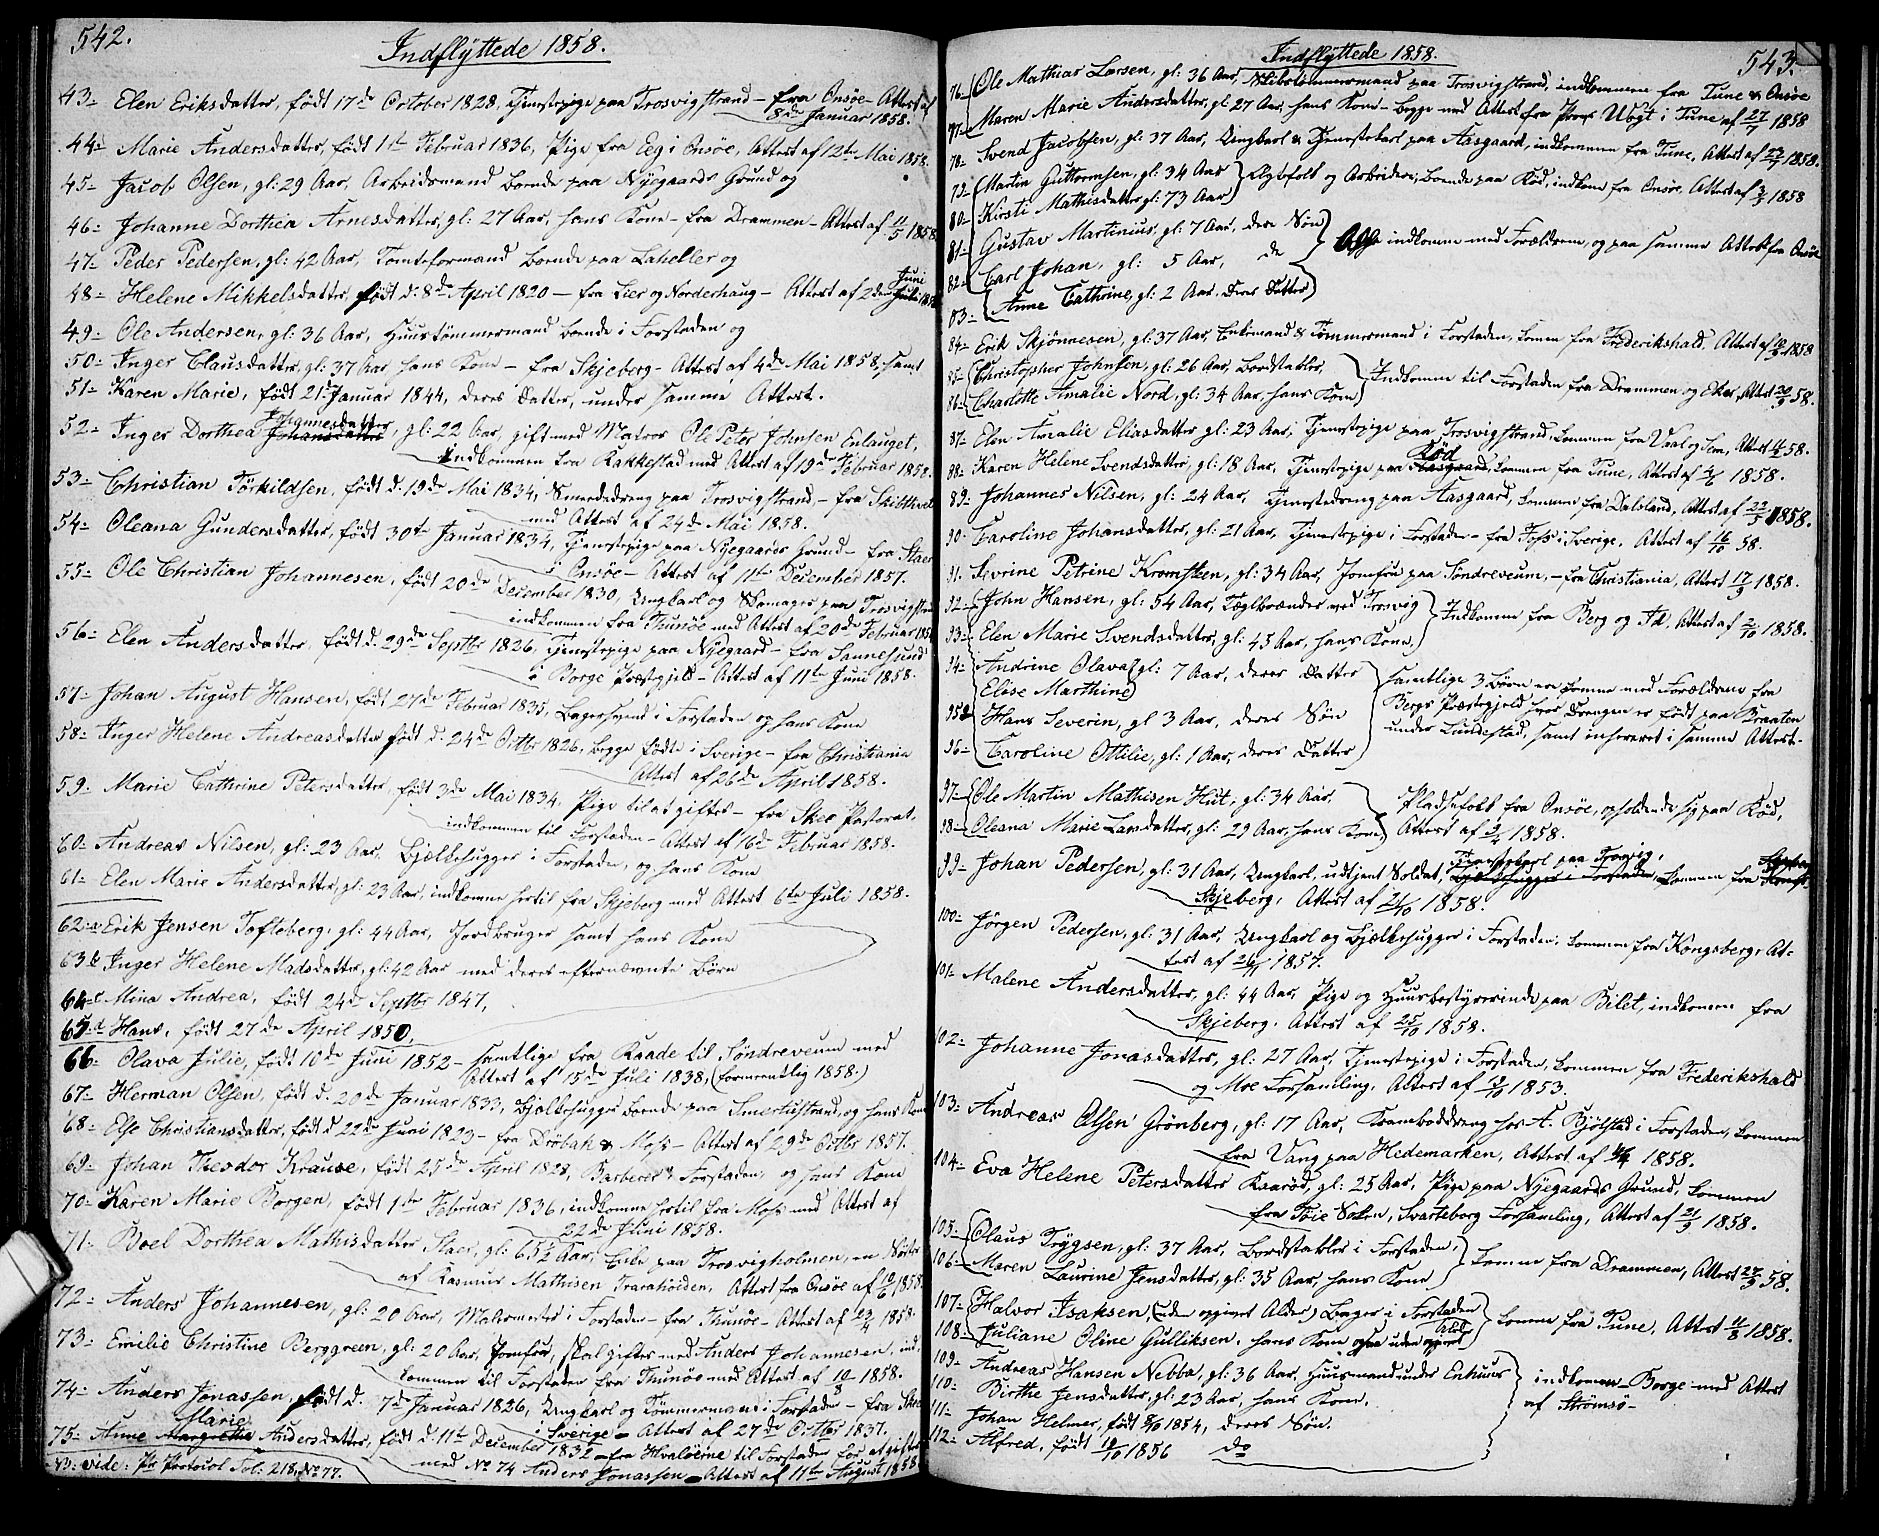 542.
Indflyttede 1858.
43- Elen Eriksdatter, født 17de October 1828, Tjenestepige paa Trosvigstrand - fra Onsøe - Attest af
8de Januar 1858.
44- Marie Andersdatter, født 1ste Februar 1836, Pige fra Eeg i Onsøe, Attest af 12te Mai 1858.
45- Jacob Olsen, gl: 29 Aar, Arbeidsmand boende paa Nyegaards Grund og
46- Johanne Dorthea Arnesdatter, gl: 27 Aar, hans Kone - fra Drammen - Attest af 11/5 1858
47- Peder Pedersen, gl: 42 Aar, Tomteformand boende paa Laheller og
48- Helene Mikkelsdatter, født d: 8de April 1820 - fra Lier og Norderhaug - Attest af 2den Juni
49- Ole Andersen, gl: 36 Aar, Huustømmermand boende i Forstaden og
50- Inger Clausdatter, gl: 37 Aar, hans Kone - fra Skjeberg - Attest af 4de Mai 1858, samt
51- Karen Marie, født 21 Januar 1844, deres Datter, under samme Attest.
52- Inger Dorthea Johannesdatter, gl: 22 Aar, gift med Matros Ole Peter Johnsen Enlauget,
indkommen fra Rakkestad med Attest af 19de Februar 1858.
53- Christian Törkildsen, født d. 19de Mai 1834, Smededreng paa Trosvigstrand, - fra Skibthvet
med Attest af 24de Mai 1858.
54- Oleana Gundersdatter, født 30te Januar 1834, Tjenestepige paa Nyegaards Grund - fra Staer
i Onsøe - Attest af 11te December 1857.
55- Ole Christian Johannesen, født 20de December 1830, Ungkarl og Skomager paa Trosvigstrand
indkommen fra Thunöe med Attest af 20de Februar 1858
56- Elen Andersdatter, født d. 29de Septbr 1826, Tjenestepige paa Nyegaard - fra Sannesund
i Borge Præstegjeld - Attest af 11te Juni 1858.
57- Johan August Hansen, født 27de Februar 1835, Bagersvend i Forstaden og hans Kone
58- Inger Helene Andreasdatter født d. 24de Octbr 1826, begge fødte i Sverige - fra Christiania
Attest af 26de April 1858.
59- Marie Cathrine Petersdatter, født 3de Mai 1834, Pige til at giftes - fra Skee Pastorat,
indkommen til Forstaden - Attest af 16de Februar 1858.
60- Andreas Nilsen, gl: 23 Aar, Bjelkehugger i Forstaden, og hans Kone
61- Elen Marie Andersdatter, gl: 23 Aar, indkomne hertil fra Skjeberg med Attest 6te Juli 1858.
62:a Erik Jensen Tofteberg, gl: 44 Aar, Jordbruger samt hans Kone
63 b Inger Helene Madsdatter, gl: 42 Aar med deres efternævnte Børn
64 c Mina Andrea, født 24de Septbr 1847,
65 d Hans, født 27de April 1850,
66- Olava Julie, født 10de Juni 1852 - samtlige fra Raade til Söndreveum med
Attest af 15de Juli 1838, (formeentlig 1858.)
67- Herman Olsen, født d. 20de Januar 1833, Bjelkehugger boende paa Smertustrand, og hans Kone
68- Else Christiansdatter, født d 22de Juni 1823 - fra Dröbak & Moss - Attest af 29de Octbr 1857.
69- Johan Theodor Krause, født 25de April 1828, Barberer i Forstaden, og hans Kone
70- Karen Marie Borgen, født 1ste Februar 1836, indkomne hertil fra Moss med Attest af
22de Juni 1858.
71- Boel Dorthea Mathisdatter Staer, gl: 65½ Aar, Enke paa Trosvigholmen, en Søster
af Rasmus Mathisen Tvarahöiden, Attest fra Onsøe af 1858
72- Anders Johannesen, gl: 20 Aar, Malermester i Forstaden - fra Thunöe - Attest af 23/4 1858.
73- Emilie Christine Berggreen, gl: 20 Aar, Jomfru, skal giftes med Anders Johannesen, ind-
kommen til Forstaden fra Thunöe med Attest af 10/8 1858.
74- Anders Jonassen, født d. 7de Januar 1826, Ungkarl og Tømmermand i Forstaden - fra Skee
i Sverige - Attest af 27de Octbr 1837.
75- Anne Marie Andersdatter, født d. 11te December 1832 - fra Hvaløerne til Forstaden for at giftes
med No 74 Anders Jonassen - Attest af 11te August 1858
NB: vide: Pr Protocol Fol: 218, No 77.
543.
Indflyttede 1858.
76- Ole Mathias Larsen, gl: 36 Aar, Skibstömmermand paa Trosvigstrand, indkommen fra Tune & Onsøe
77- Maren Marie Andersdatter, gl 27 Aar, hans Kone - begge med Attest fra Tune af 27/7 1858
78- Svend Jacobsen, gl: 37 Aar, Ungkarl & Tjenestekarl paa Aasgaard, indkommen fra Tune, Attest af 1858.
79- Martin Guttormsen, gl: 34 Aar
80- Kirsti Mathisdatter gl: 73 Aar } Leiefolk og Arbeidere, boende paa Röd, indkom fra Onsøe, Attest af 1858
81- Gustav Martinius, gl: 7 Aar, deres Sön
82- Carl Johan, gl: 5 Aar, do } indkomne med Forældrene, og paa samme Attest fra Onsøe
83- Anne Cathrine, gl: 2 Aar, deres Datter
84- Erik Skjönnesen, gl: 37 Aar, Enkemand & Tømmermand i Forstaden, kommen fra Frederikshald, Attest af 1858
85- Christopher Johnsen, gl: 26 Aar, Bordstabler,
86- Charlotte Amalie Nord, gl: 34 Aar, hans Kone } Indkomne til Forstaden fra Drammen og Eker, Attest 58.
87- Elen Amalie Eliasdatter gl: 23 Aar, Tjenestepige paa Trosvigstrand, kommen fra Vaal og Sem, Attest 58.
88- Karen Helene Svendsdatter, gl: 18 Aar, Tjenestepige paa Röd, kommen fra Tune, Attest af 1858.
89- Johannes Nilsen, gl: 24 Aar, Tjenestedreng paa Aasgaard, kommen fra Dalsland, Attest af 22/5 1858.
90- Caroline Johansdatter, gl: 21 Aar, Tjenestepige i Forstaden - fra Foss i Sverige, Attest af 16/10 58.
91- Sivrine Petrine Kromsteen, gl: 34 Aar, Jomfru paa Söndreveum, - fra Christiania, Attest 17/9 1858.
92- John Hansen, gl: 54 Aar, Teglbrænder ved Trosvig
93- Elen Marie Svendsdatter, gl: 45 Aar, hans Kone, } Indkomne fra Berg og Id, Attest af 2/10 1858.
94- Andrine Olava gl: 7 Aar, deres Datter
Elise Marthine
95- Hans Severin, gl 3 Aar, deres Sön
96- Caroline Ottilie, gl: 1 Aar, deres Datter
samtlige 3 Børn ere komne med Forældrene fra
Bergs Præstegjeld hvor Drengen er født paa Braaten
under Lundestad, samt inhereret i samme Attest.
97- Ole Martin Mathisen Hut, gl: 34 Aar,
98- Oleana Marie Larsdatter, gl: 29 Aar, hans Kone
Pladsefolk fra Onsøe, opholdende sig paa Röd,
Attest af 1858.
99- Johan Pedersen, gl: 31 Aar, Ungkarl, udtjent Soldat, Tjenestekarl paa Trosvig, kommen fra
Skjeberg, Attest af 21/10 1858.
100- Jörgen Pedersen, gl: 31 Aar, Ungkarl og Bjelkehugger i Forstaden, kommen fra Kongsberg, At-
test af 1857.
101- Malene Andersdatter, gl: 44 Aar, Pige og Huusbestyrerinde paa Bilet, indkommen fra
Skjeberg, Attest af 25/10 1858.
102- Johanne Jonasdatter, gl: 27 Aar, Tjenestepige i Forstaden, kommen fra Frederikshald
og Moe Forsamling, Attest af 1853.
103- Andreas Olsen Grönberg, gl: 17 Aar, Kramboddreng hos A. Bjölstad i Forstaden, kommen
fra Vang paa Hedemarken, Attest af 1858.
104- Eva Helene Petersdatter Kaaröd, gl: 25 Aar, Pige paa Nyegaards Grund, kommen
fra Töie Soken, Svarteborg Forsamling, Attest af 21/9 1858.
105- Claus Trÿgsen, gl: 37 Aar, Bordstabler i Forstaden,
106- Maren Laurine Jensdatter, gl: 35 Aar, hans Kone } komne fra Drammen, Attest 27/9 58.
107- Halvor Isaksen, (uden opgivet Alder) Bager i Forstaden
108- Juliane Oline Gulliksen, hans Kone ogsaa uden opgivet Alder } komne fra Tune, Attest 11/8 1858.
109- Andreas Hansen Nebba, gl: 36 Aar, Huusmand under Enhuus
110- Birthe Jensdatter, gl: 23 Aar, hans Kone.
111- Johan Helmer, født 1854, deres Sön.
112- Alfred, født 10/10 1856 do
indkomne - Borge med Attest
af Strömsö -